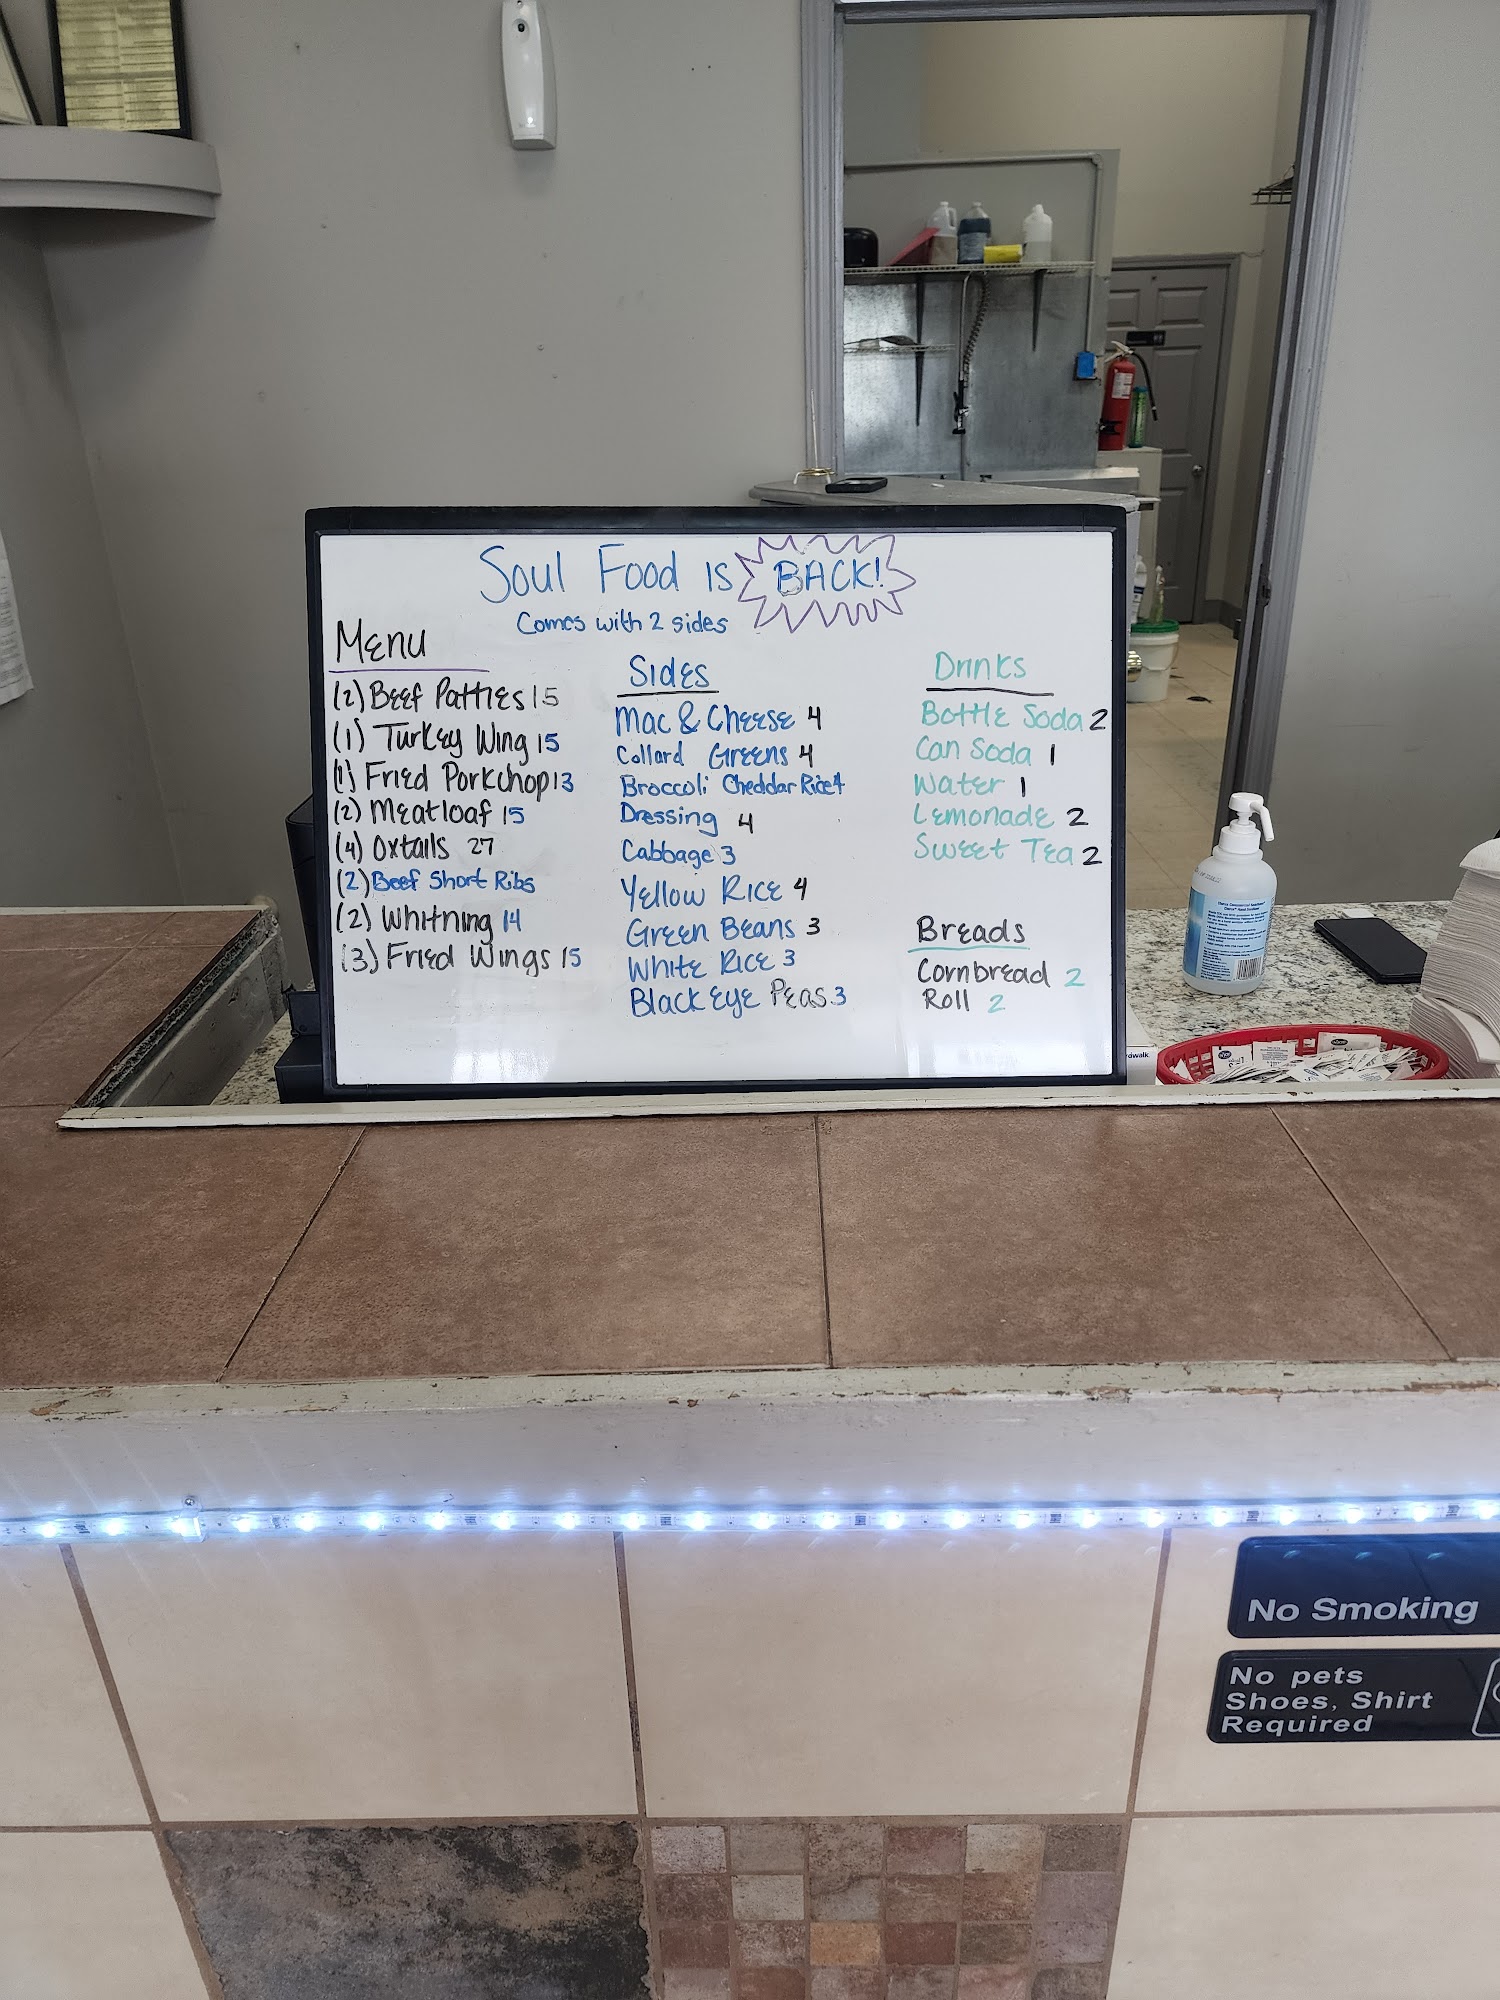 Soul Food is BACK!
Comes with 2 sides
Menu
(2) Beef Patties 15
(1) Turkey Wing 15
(1) Fried Porkchop 13
(2) Meatloaf 15
(4) Oxtails 27
(2) Beef Short Ribs
(2) Whitning 14
(3) Fried Wings 15
Sides
Mac & Cheese 4
Collard Greens 4
Broccoli Cheddar Rice 4
Dressing 4
Cabbage 3
Yellow Rice 4
Green Beans 3
White Rice 3
Black Eye Peas 3
Drinks
Bottle Soda 2
Can Soda 1
Water 1
Lemonade 2
Sweet Tea 2
Breads
Cornbread 2
Roll 2
No Smoking
No pets
Shoes, Shirt
Required